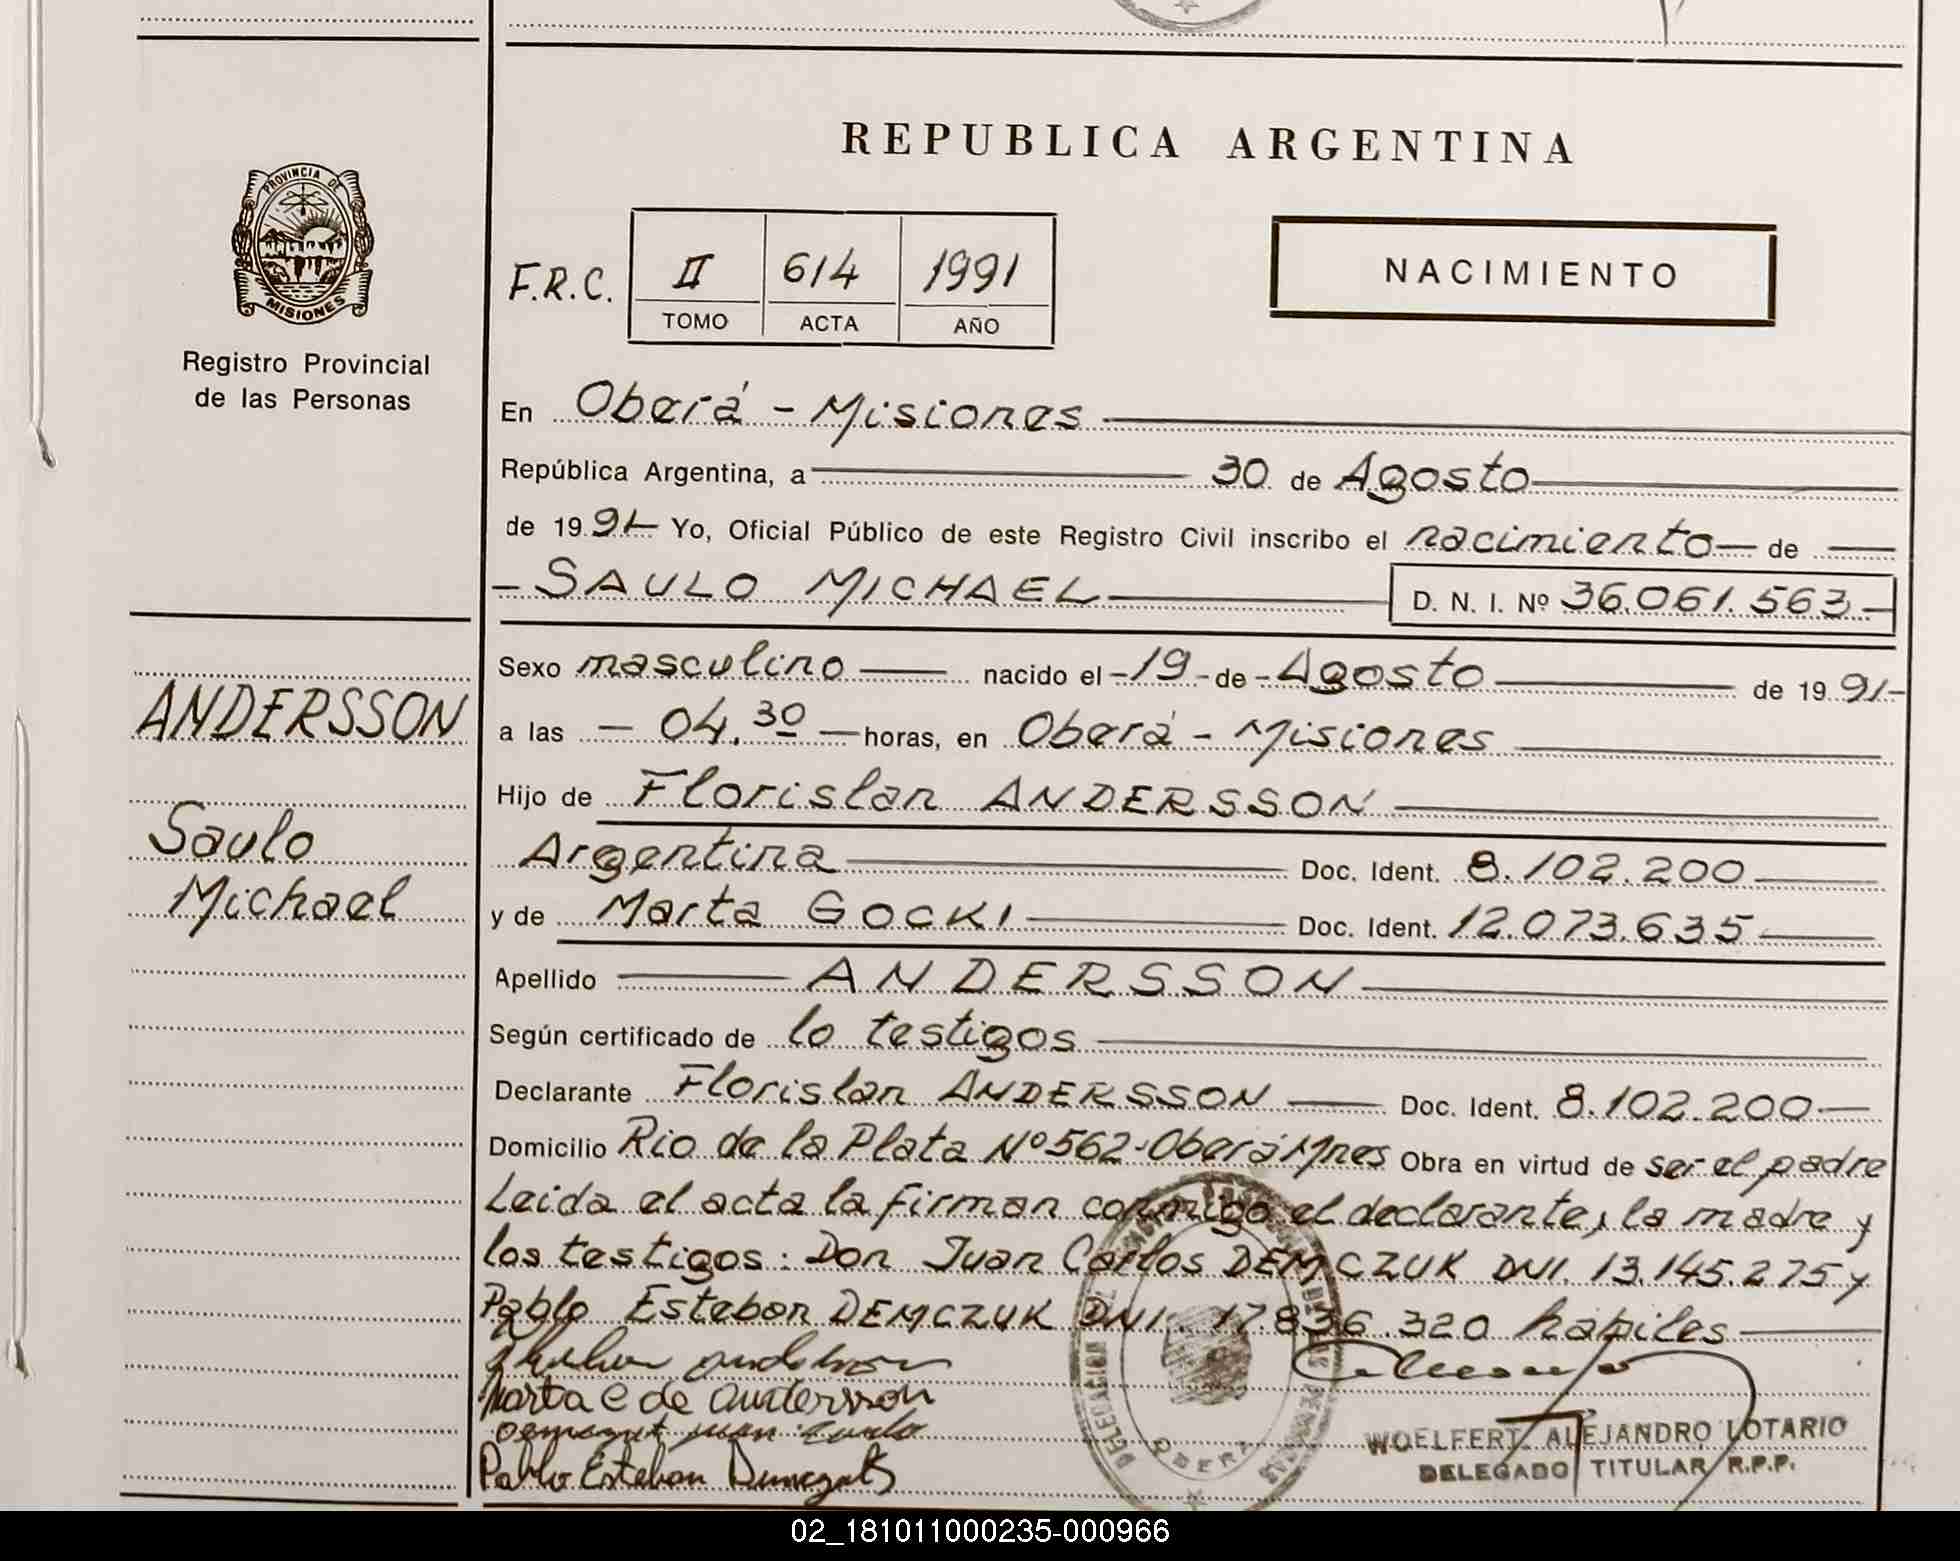 REPUBLICA ARGENTINA
PROVINCIA DE
MISIONES
Registro Provincial
de las Personas
F.R.C. II 614 1991
TOMO ACTA AÑO
NACIMIENTO
En Oberá - Misiones
República Argentina, a 30 de Agosto
de 1991- Yo, Oficial Público de este Registro Civil inscribo el nacimiento de
- SAULO MICHAEL D. N. I. Nº 36.061.563.-
ANDERSSON
Saulo
Michael
Sexo masculino nacido el -19- de - Agosto de 1991-
a las - 04.30 - horas, en Oberá - Misiones
Hijo de Florislan ANDERSSON
Argentina Doc. Ident. 8.102.200
y de Marta GOCKI Doc. Ident. 12.073.635
Apellido ANDERSSON
Según certificado de lo testigos
Declarante Florislan ANDERSSON Doc. Ident. 8.102.200
Domicilio Rio de la Plata Nº 562-Oberá Mnes Obra en virtud de ser el padre
Leida el acta la firman conmigo el declarante, la madre y
los testigos: Don Juan Carlos DEMCZUK DNI. 13.145.275 y
Pablo Esteban DEMCZUK DNI. 17.836.320 hábiles
Marta de Andersson
Pablo Esteban
DELEGACION
OBERA
WOELFERT ALEJANDRO LOTARIO
DELEGADO TITULAR R.P.P.
02_181011000235-000966